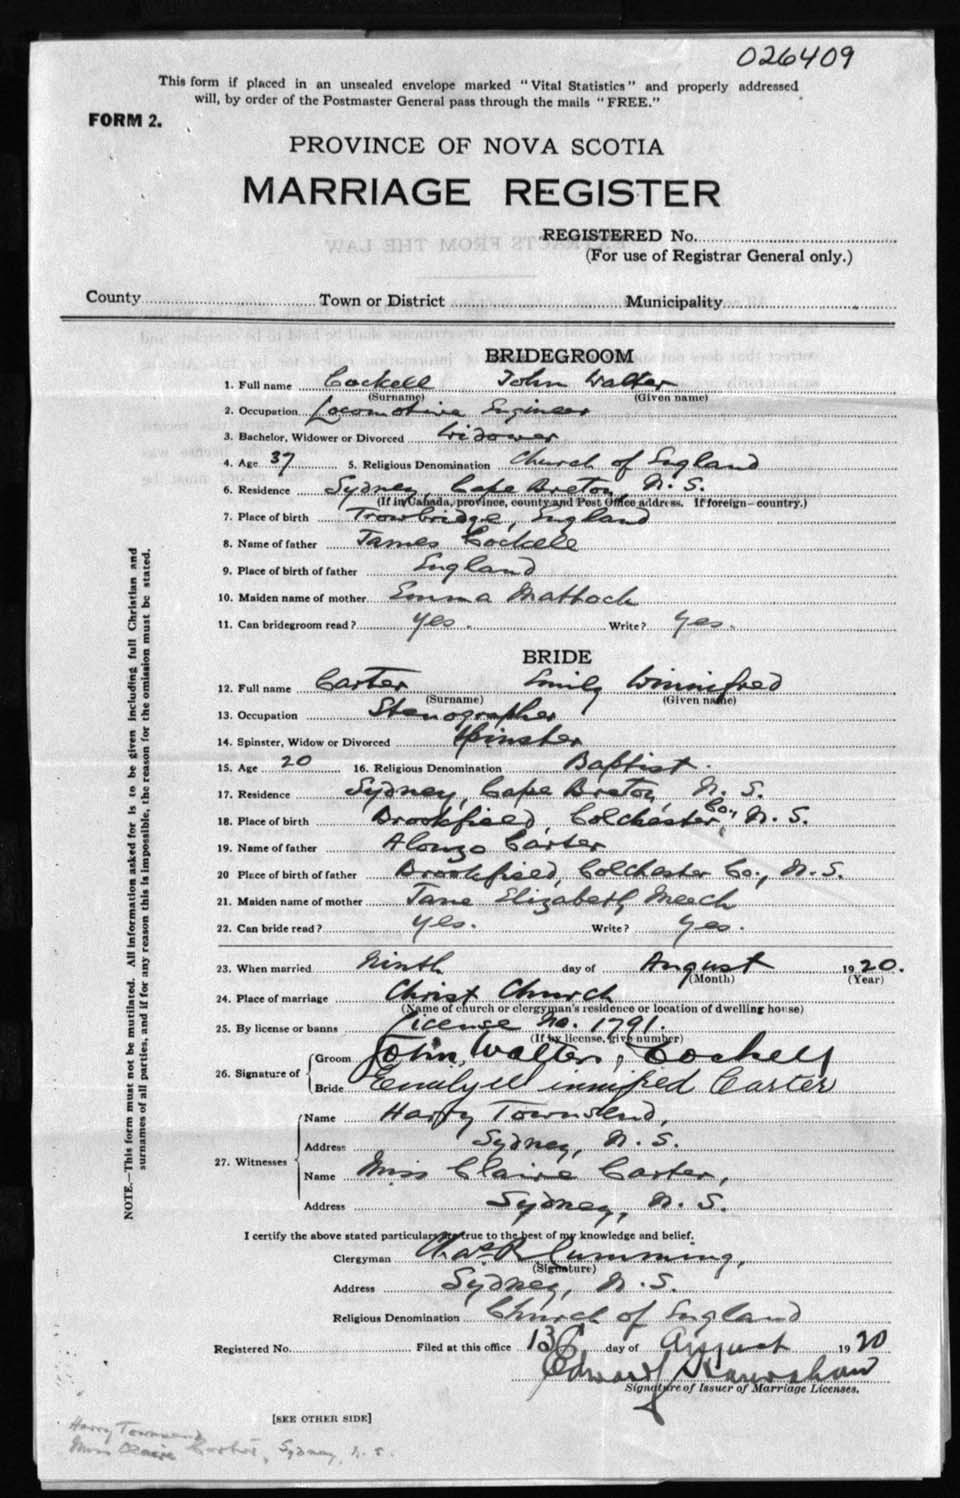 026409
This form if placed in an unsealed envelope marked "Vital Statistics" and properly addressed
will, by order of the Postmaster General pass through the mails "FREE."
FORM 2.
PROVINCE OF NOVA SCOTIA
MARRIAGE REGISTER
REGISTERED No.
(For use of Registrar General only.)
County Town or District Municipality
BRIDEGROOM
1. Full name Cockell John Walter
(Surname) (Given name)
2. Occupation Locomotive Engineer
3. Bachelor, Widower or Divorced Widower
4. Age 37 5. Religious Denomination Church of England
6. Residence Sydney, Cape Breton, N. S.
(If in Canada, province, county and Post Office address. If foreign—country.)
7. Place of birth Trowbridge, England
8. Name of father James Cockell
9. Place of birth of father England
10. Maiden name of mother Emma Mattock
11. Can bridegroom read? Yes. Write? Yes.
BRIDE
12. Full name Carter Emily Winnifred
(Surname) (Given name)
13. Occupation Stenographer
14. Spinster, Widow or Divorced Spinster
15. Age 20 16. Religious Denomination Baptist.
17. Residence Sydney, Cape Breton, N. S.
18. Place of birth Brookfield, Colchester Co., N. S.
19. Name of father Alonzo Carter
20 Place of birth of father Brookfield, Colchester Co., N. S.
21. Maiden name of mother Jane Elizabeth Meech
22. Can bride read? Yes. Write? Yes.
23. When married Ninth day of August 1920.
(Month) (Year)
24. Place of marriage Christ Church
(Name of church or clergyman's residence or location of dwelling house)
25. By license or banns License No. 1791.
(If by license, give number)
26. Signature of Groom John Walter Cockell
Bride Emily Winnifred Carter
27. Witnesses Name Harry Townsend,
Address Sydney, N. S.
Name Miss Claire Carter,
Address Sydney, N. S.
I certify the above stated particulars are true to the best of my knowledge and belief.
Clergyman Chas R Cumming,
(Signature)
Address Sydney, N. S.
Religious Denomination Church of England
Registered No. Filed at this office 13 day of August 1920
Edward
Signature of Issuer of Marriage Licenses.
[SEE OTHER SIDE]
Harry Townsend
Miss Claire Carter, Sydney, N. S.
NOTE.—This form must not be mutilated. All information asked for is to be given including full Christian and
surnames of all parties, and if for any reason this is impossible, the reason for the omission must be stated.